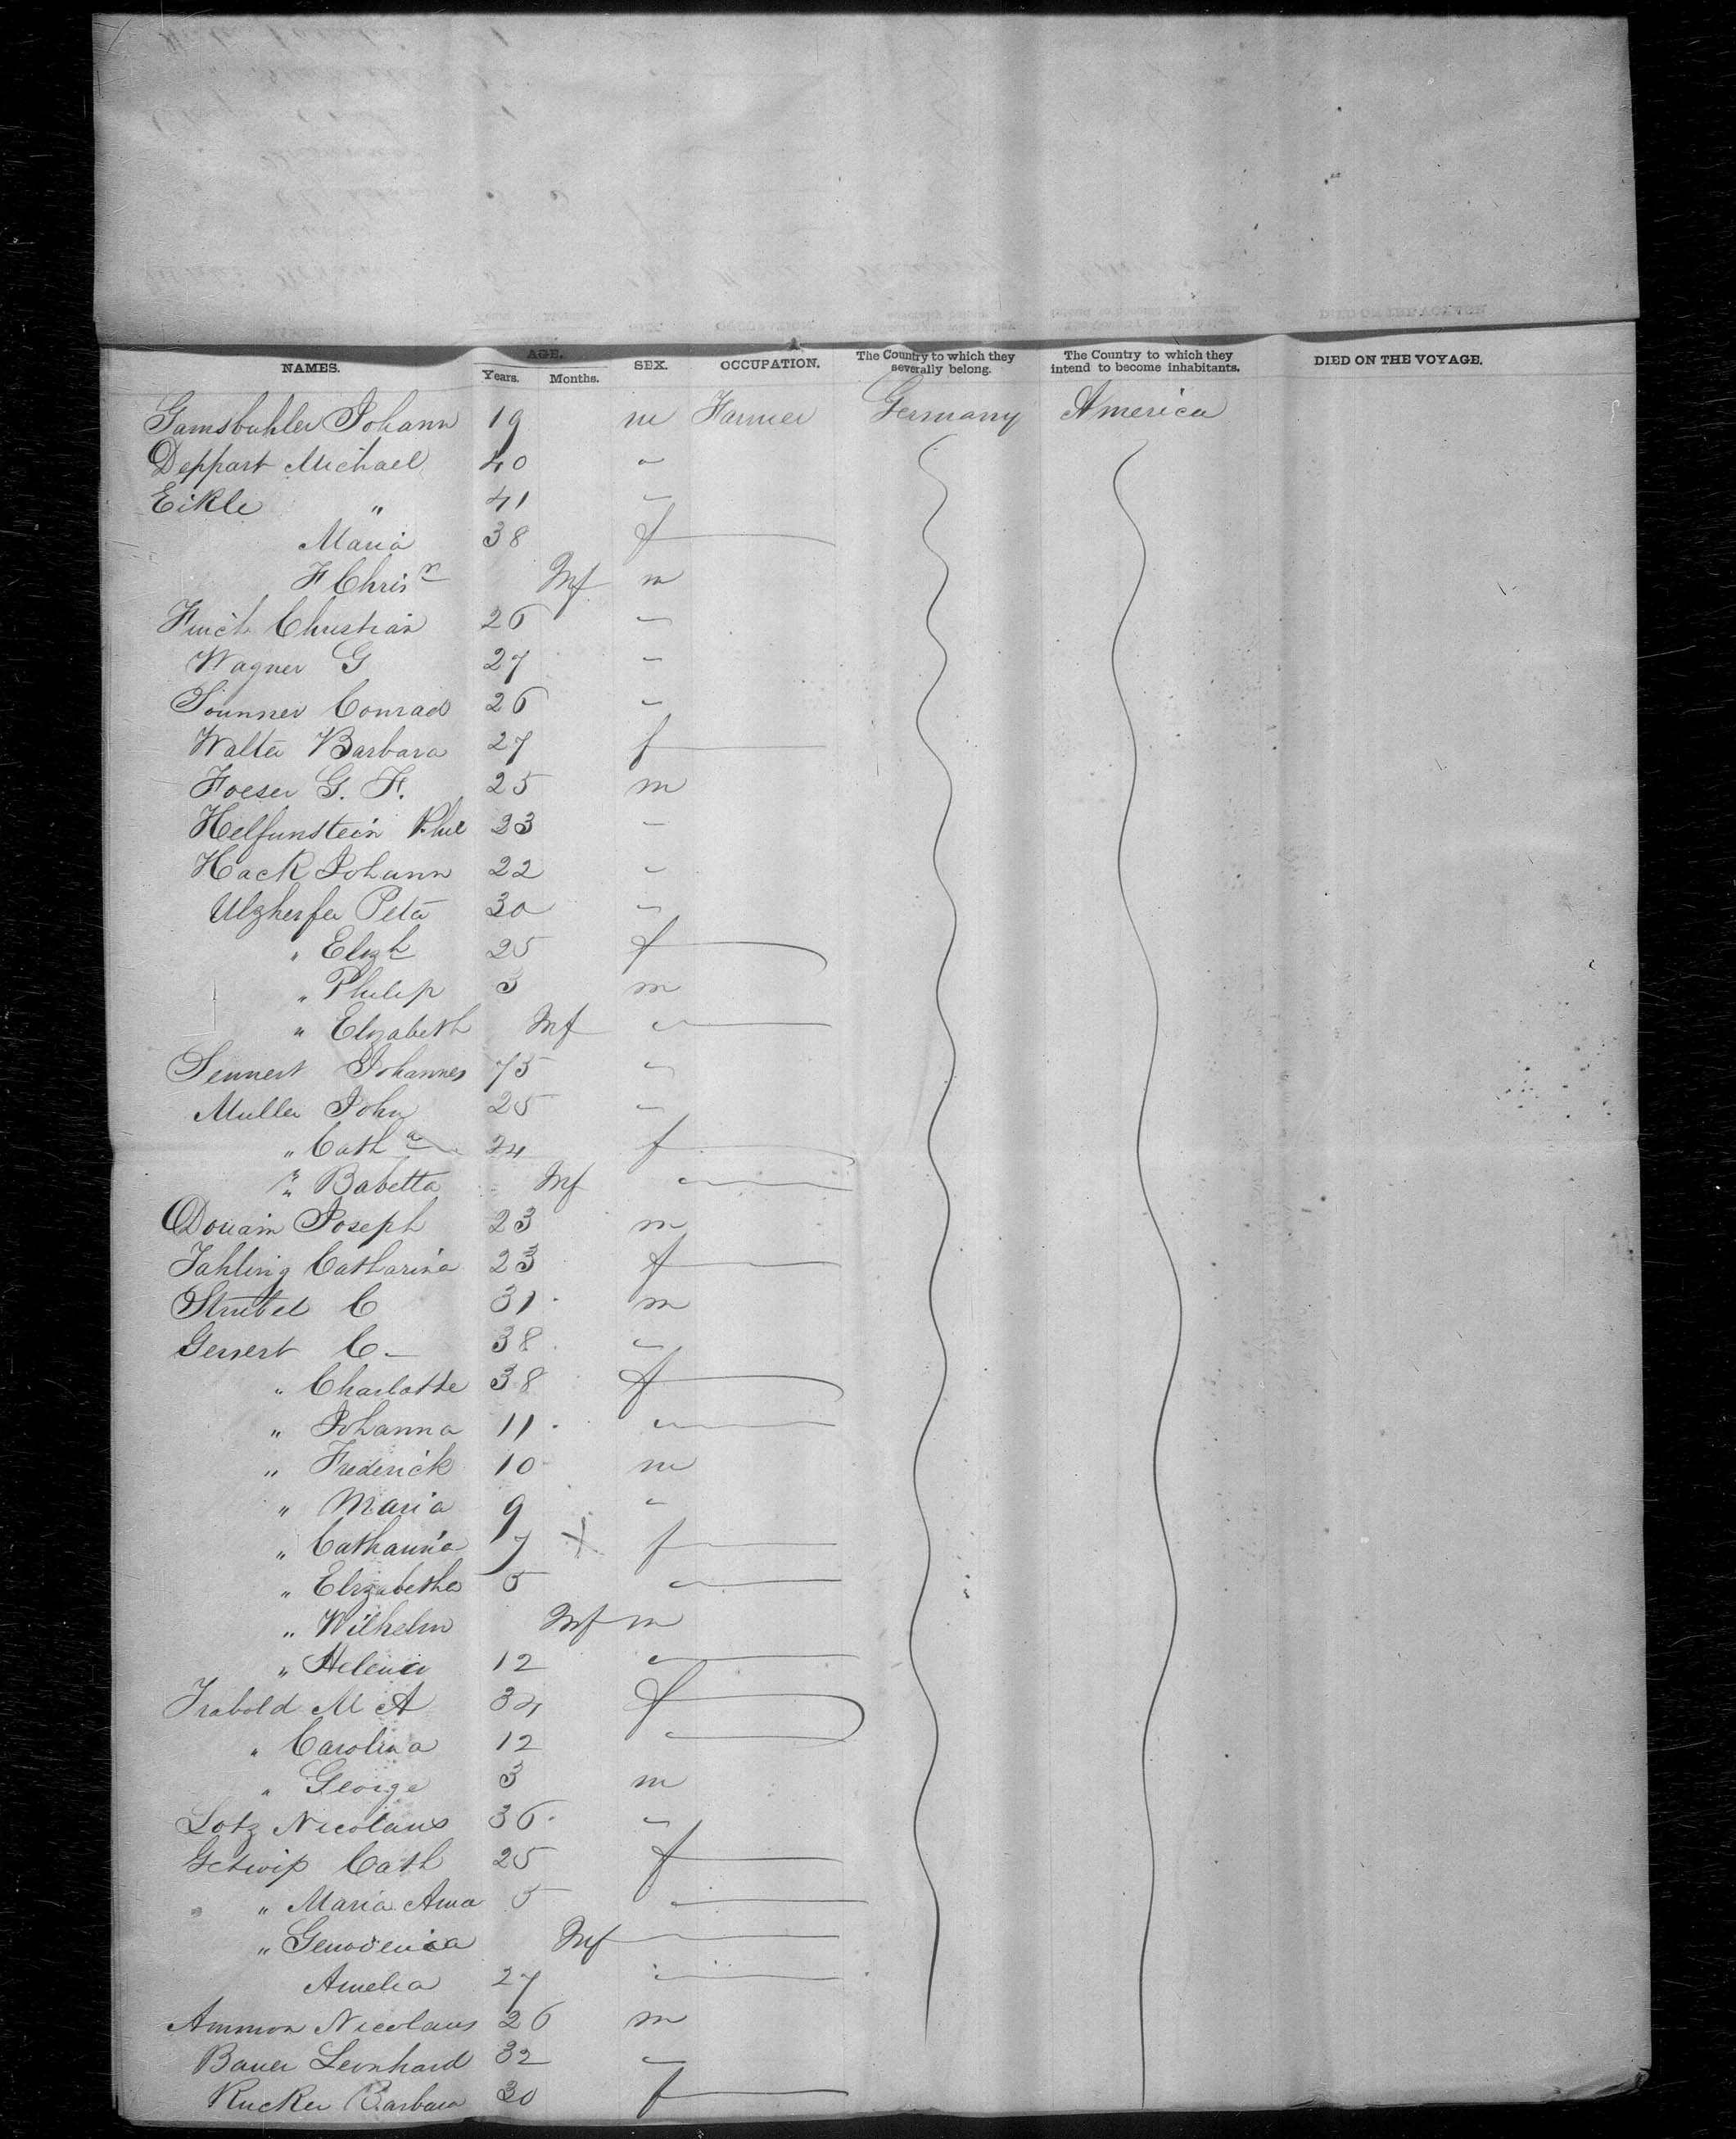 NAMES. AGE. Years. Months. SEX. OCCUPATION. The Country to which they severally belong. The Country to which they intend to become inhabitants. DIED ON THE VOYAGE.
Gamsbuhler Johann 19 m Farmer Germany America
Deppart Michael 40 "
Eikle " 41 "
Maria 38 f
F Chrisn Inf m
Finch Christian 26 "
Wagner G 27 "
Sounner Conrad 26 "
Walter Barbara 27 f
Foeser G. F. 25 m
Helfunstein Phil 23 "
Hack Johann 22 "
Ulzherfer Peter 30 "
" Elizh 25 f
" Philip 3 m
" Elizabeth Inf "
Sennert Johannes 75 "
Muller John 25 "
" Catha 24 f
" Babetta Inf "
Douain Joseph 23 m
Jahling Catharina 23 f
Strubel C 31 m
Gersert C 38 "
" Charlotte 38 f
" Johanna 11 "
" Frederick 10 m
" Maria 9 "
" Catharina 7 X f
" Elizabetha 5 "
" Wilhelm Inf m
" Helena 12 "
Trabold M A 34 f
" Carolina 12 "
" George 3 m
Lotz Nicolaus 36 "
Getwip Cath 25 f
" Maria Anna 5 "
" Genovenia Inf
Amelia 27 "
Ammon Nicolaus 26 m
Bauer Leonhard 32 "
Rucker Barbara 30 f